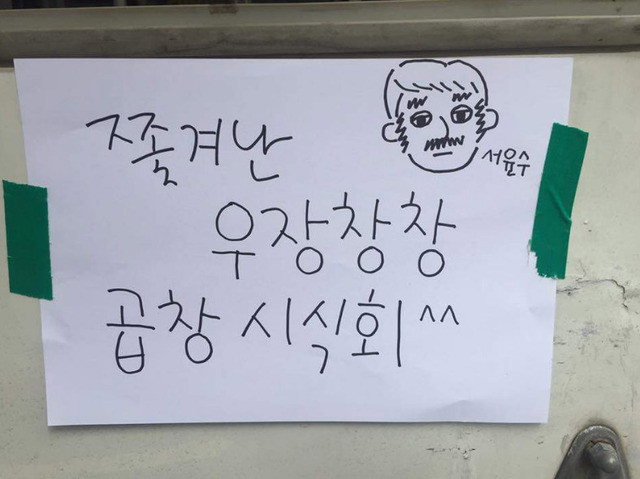 쫓겨난
서윤수
우장창창
곱창 시식회 ^^